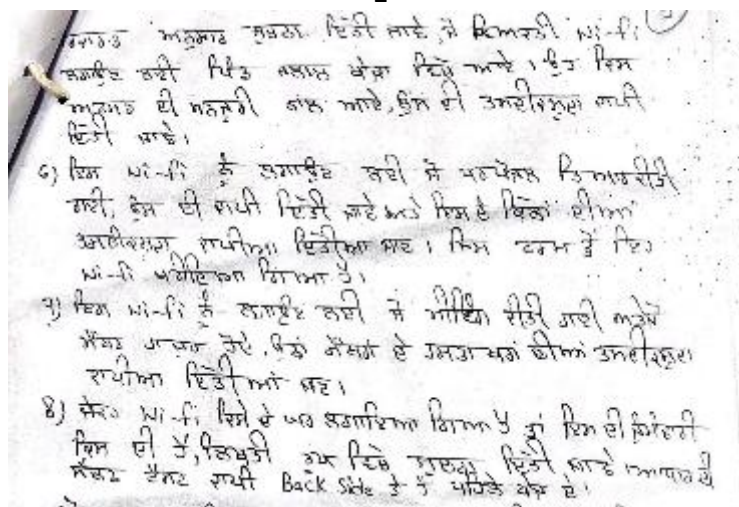 ਅਨੁਸਾਰ ਸੂਚਨਾ ਦਿੱਤੀ ਜਾਵੇ, ਜੋ ਵਿਅਕਤੀ Wi-Fi
ਲਗਾਉਣ ਲਈ ਪਿੰਡ ਕਲਾਲ ਵਿਖੇ ਆਏ। ਉਹ ਕਿਸ
ਦੀ ਮਨਜੂਰੀ ਨਾਲ ਆਏ, ਉਸ ਦੀ ਤਸਦੀਕਸ਼ੁਦਾ ਕਾਪੀ
ਦਿੱਤੀ ਜਾਵੇ।
6) ਇਸ Wi-Fi ਨੂੰ ਲਗਾਉਣ ਲਈ ਜੋ ਪਰਪੋਜਲ ਤਿਆਰ ਕੀਤੀ
ਗਈ, ਉਸ ਦੀ ਕਾਪੀ ਦਿੱਤੀ ਜਾਵੇ ਅਤੇ ਇਸ ਦੇ ਬਿੱਲਾਂ ਦੀਆਂ
ਤਸਦੀਕਸ਼ੁਦਾ ਕਾਪੀਆਂ ਦਿੱਤੀਆਂ ਜਾਣ। ਕਿਸ ਫਰਮ ਤੋਂ ਇਹ
Wi-Fi ਖਰੀਦਿਆ ਗਿਆ ਹੈ।
7) ਇਸ Wi-Fi ਨੂੰ ਲਗਾਉਣ ਲਈ ਜੋ ਮੀਟਿੰਗ ਕੀਤੀ ਗਈ ਅਤੇ ਜੋ
ਮੈਂਬਰ ਹਾਜ਼ਰ ਹੋਏ, ਉਹਨਾਂ ਮੈਂਬਰਾਂ ਦੇ ਹਸਤਾਖਰਾਂ ਦੀਆਂ ਤਸਦੀਕਸ਼ੁਦਾ
ਕਾਪੀਆਂ ਦਿੱਤੀਆਂ ਜਾਣ।
8) ਜੇਕਰ Wi-Fi ਕਿਸੇ ਦੇ ਘਰ ਲਗਾਇਆ ਗਿਆ ਹੈ ਤਾਂ ਇਸ ਦੀ ਜਿੰਮੇਵਾਰੀ
ਕਿਸ ਦੀ ਹੈ, ਲਿਖਤੀ ਰੂਪ ਵਿੱਚ ਸੂਚਨਾ ਦਿੱਤੀ ਜਾਵੇ।
ਕਾਪੀ Back Side ਤੇ